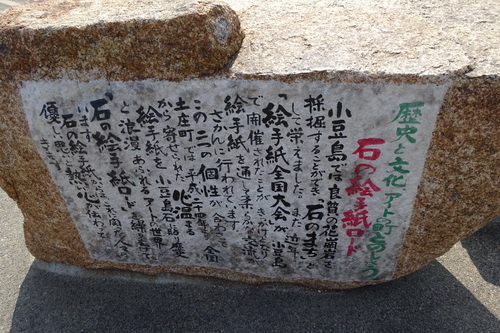 歴史と文化、アートの町とのしょう
石の絵手紙ロード
小豆島では良質の花崗岩を
採掘することができ、石のまちと
して栄えました。また、近年
「絵手紙全国大会」が小豆島
で開催されたことがきっかけとなり
絵手紙を通して柔らかな交流が
さかんに行われています。
この二つの個性が合わさり
土庄町では平成
から寄せられた心温まる
絵手紙を小豆島石に
と浪漫あふれるアートの世界
「石の絵手紙ロード」
います。
石の絵手紙から
優しい思い、熱い心が伝わって